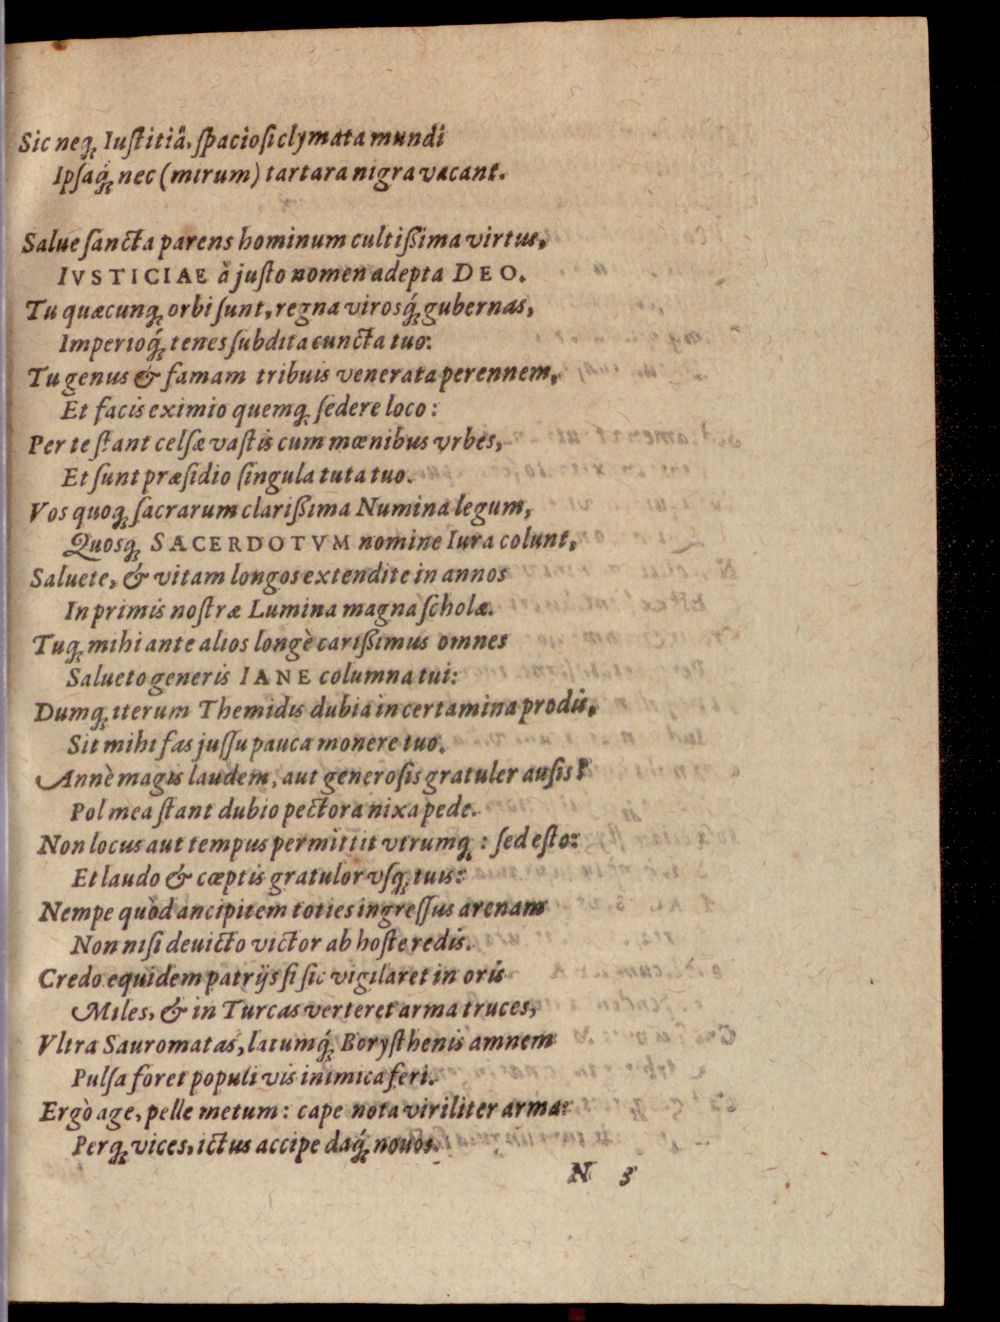 Sic neq́; Iuſtitiâ, ſpacioſi clymata mundi
Ipſaq́; nec (mirum) tartara nigra vacant.
Salue ſancta parens hominum cultiſſima virtus,
IVSTICIAE à juſto nomen adepta DEO.
Tu quæcunq; orbi ſunt, regna virosq́; gubernas,
Imperioq́; tenes ſubdita cuncta tuo.
Tu genus & famam tribuis venerata perennem,
Et facis eximio quemq; ſedere loco:
Per te ſtant celſæ vaſtis cum mœnibus vrbes,
Et ſunt præſidio ſingula tuta tuo.
Vos quoq; ſacrarum clariſſima Numina legum,
Quosq; SACERDOTVM nomine Iura colunt,
Saluete, & vitam longos extendite in annos
In primis noſtræ Lumina magna ſcholæ.
Tuq; mihi ante alios longè cariſſimus omnes
Salueto generis IANE columna tui:
Dumq; iterum Themidis dubia in certamina prodis,
Sit mihi fas juſſu pauca monere tuo.
Annè magis laudem, aut generoſis gratuler auſis?
Pol mea ſtant dubio pectora nixa pede.
Non locus aut tempus permittit vtrumq; : ſed eſto:
Et laudo & cœptis gratulor vſq; tuis:
Nempe quòd ancipitem toties ingreſſus arenam
Non niſi deuicto victor ab hoſte redis.
Credo equidem patrijs ſi ſic vigilaret in oris
Miles, & in Turcas verteret arma truces,
Vltra Sauromatas, latumq́; Boryſthenis amnem
Pulſa foret populi vis inimica feri.
Ergò age, pelle metum: cape nota viriliter arma:
Perq; vices, ictus accipe daq́; nouos.
N 3